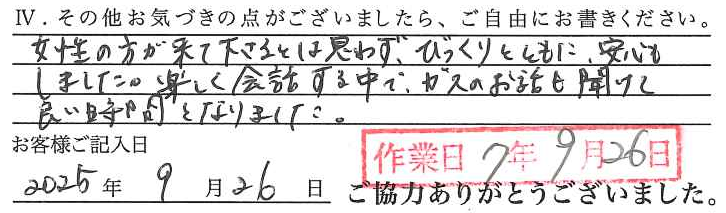 Ⅳ．その他お気づきの点がございましたら、ご自由にお書きください。
女性の方が来て下さるとは思わず、びっくりとともに、安心も
しました。楽しく会話する中で、ガスのお話も聞けて
良い時間となりました。
お客様ご記入日
作業日 7年 9月26日
2025年 9月26日 ご協力ありがとうございました。